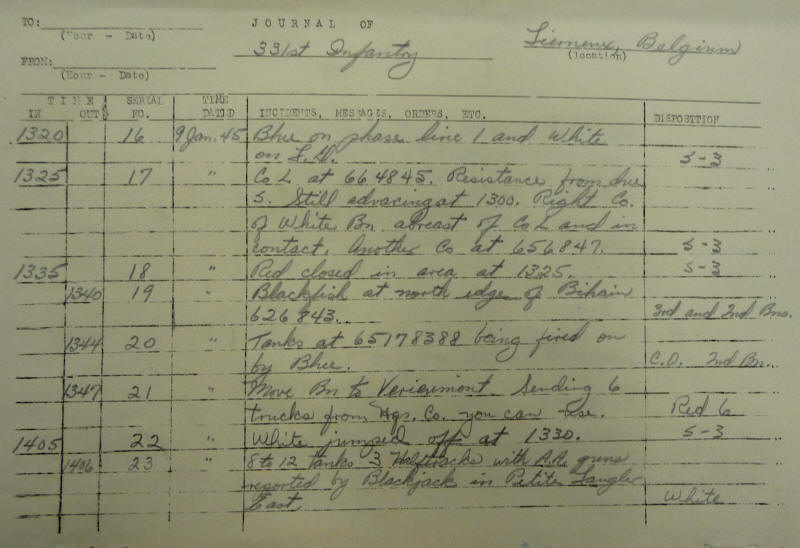 TO: JOURNAL OF
(Hour - Date) 331st Infantry Lierneux, Belgium
FROM: (location)
(Hour - Date)
TIME SERIAL TIME
IN OUT NO. DATED INCIDENTS, MESSAGES, ORDERS, ETC. DISPOSITION
1320 16 9 Jan. 45 Blue on phase line 1 and White
on L.D. S-3
1325 17 " Co L at 664845. Resistance from due
S. Still advacing at 1300. Right Co.
of White Bn abreast of Co L and in
contact. Another Co at 656847. S-3
1335 18 " Red closed in area at 1325. S-3
1340 19 " Blackfish at north edge of Bihain
626843. 3rd and 2nd Bns.
1344 20 " Tanks at 65178388 being fired on
by Blue. C.O. 2nd Bn.
1347 21 " Move Bn to Verieumont. Sending 6
trucks from Hqs. Co. you can use. Red 6
1405 22 " White jumped off at 1330. S-3
1406 23 " 8 to 12 Tanks 3 Halftracks with A.A. guns
reported by Blackjack in Petite Langlir
East. White